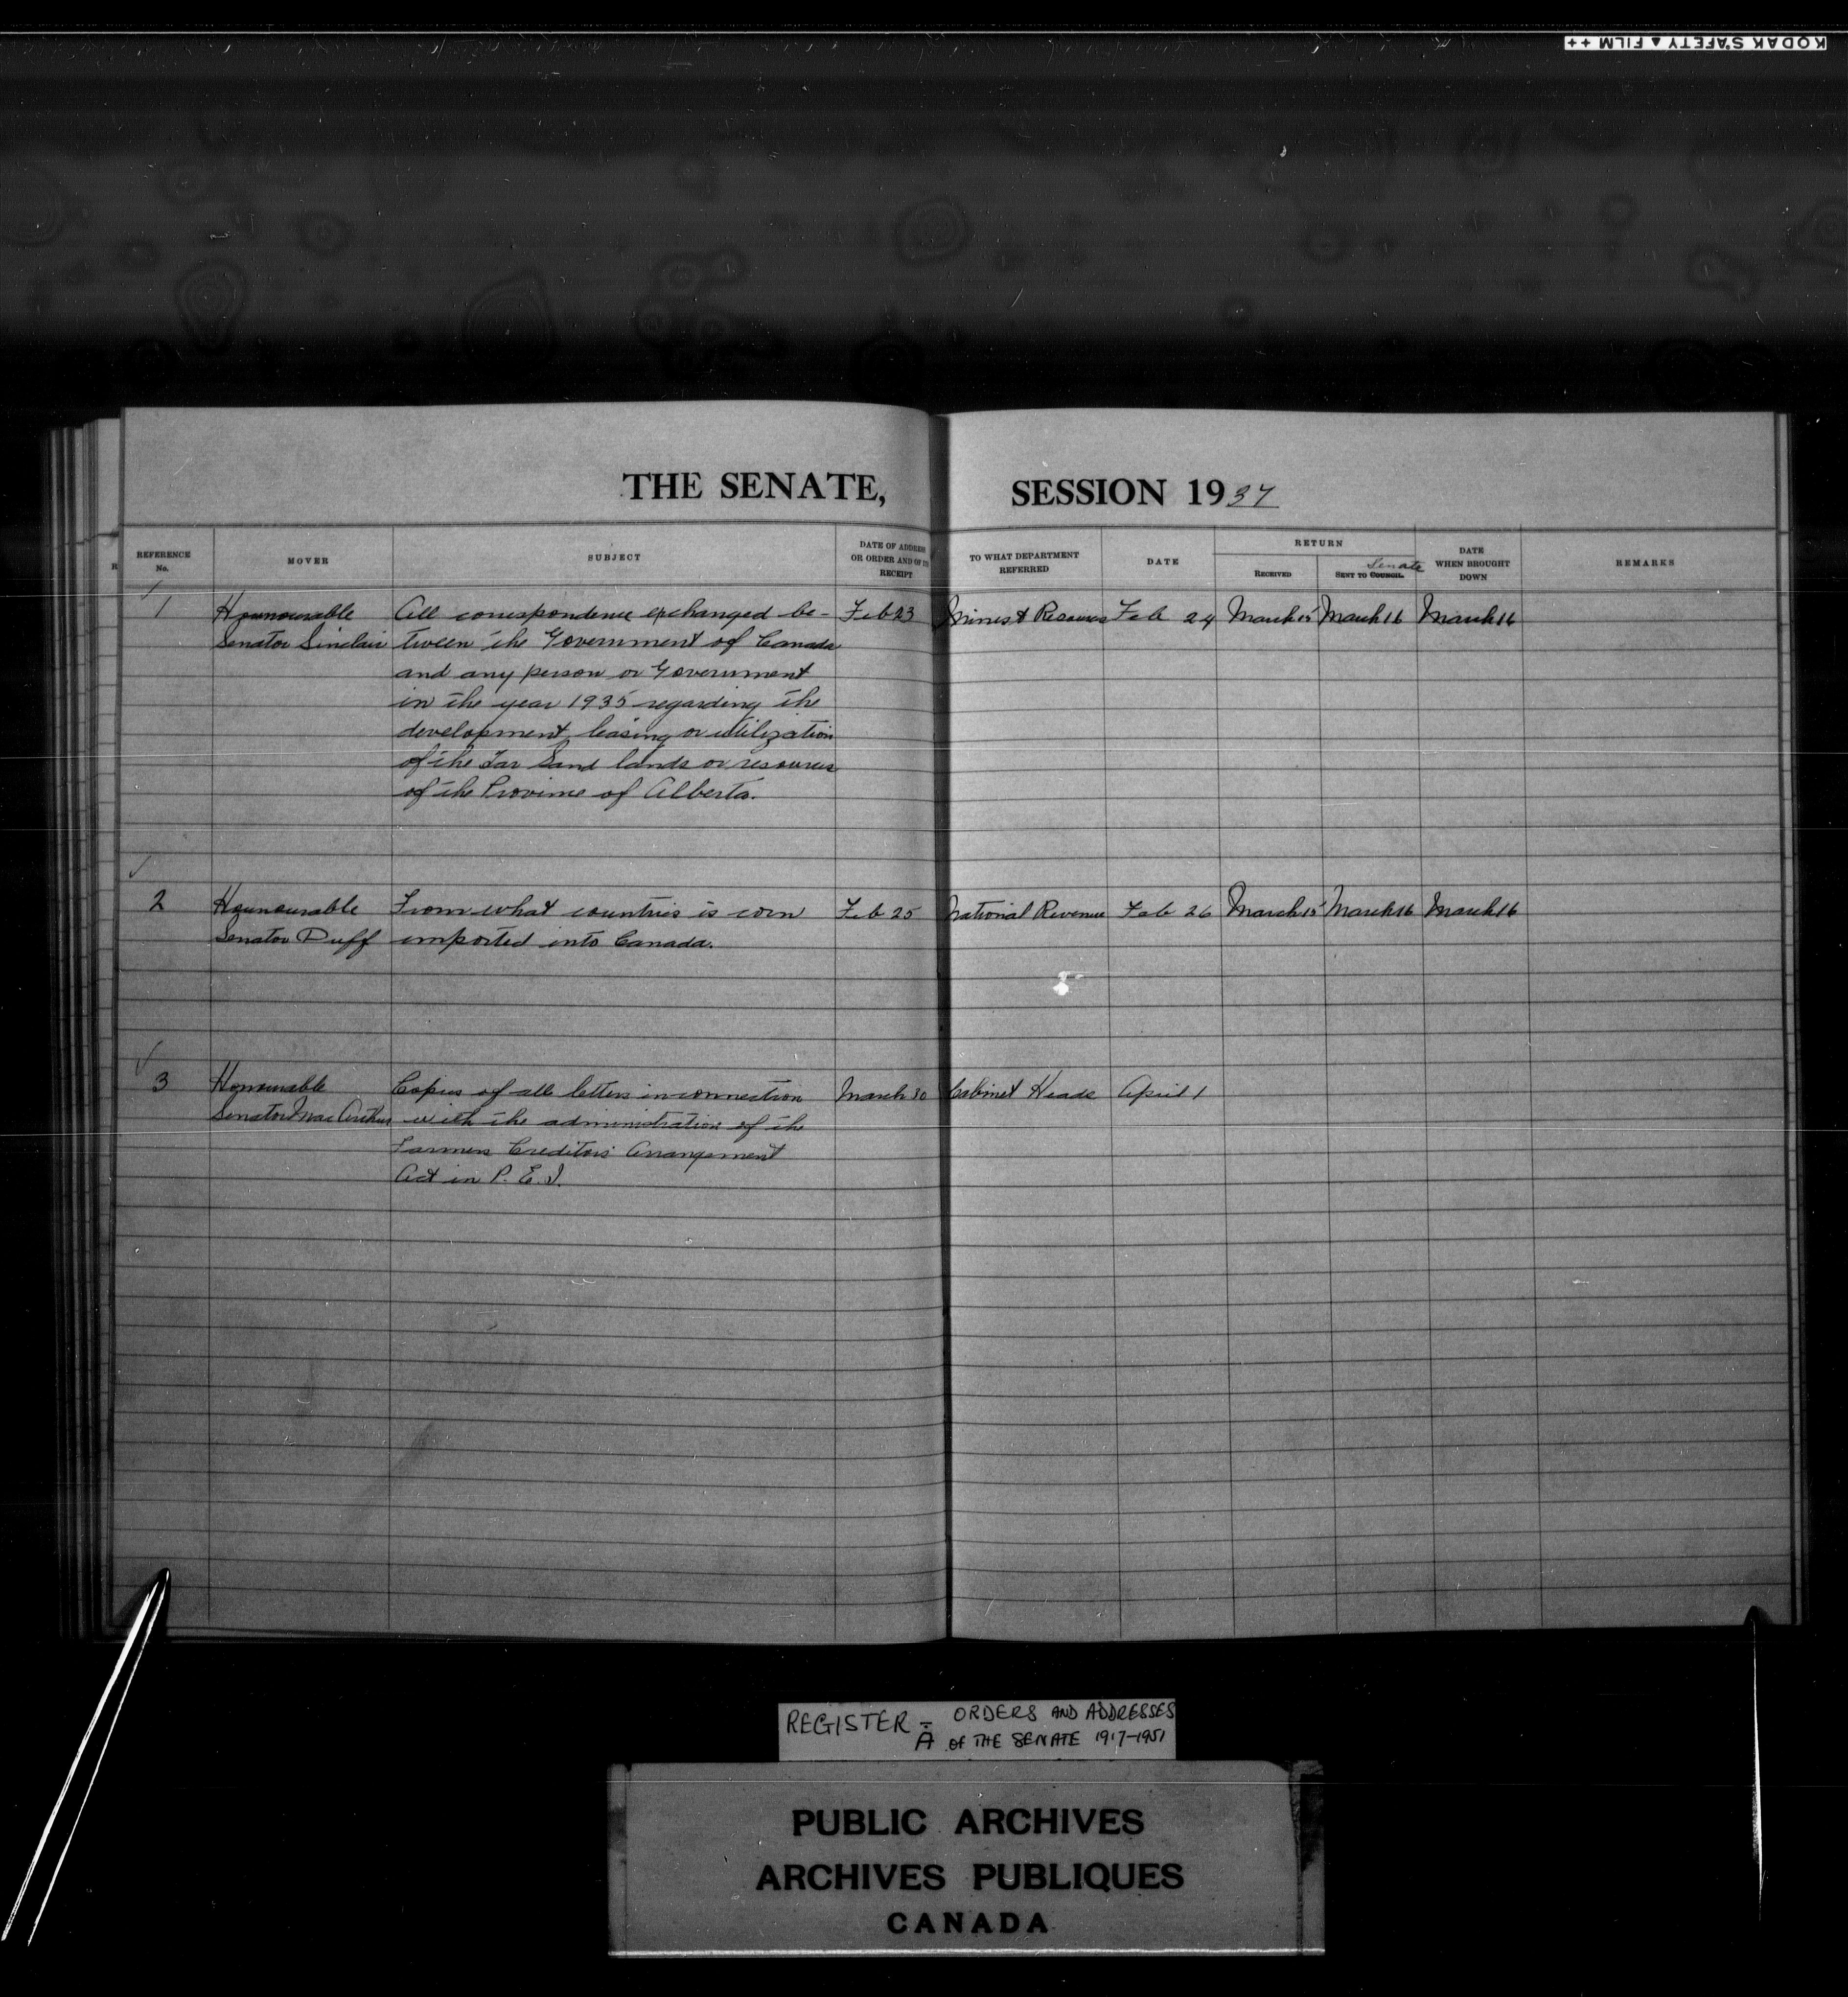 KODAK SAFETY ▲ FILM ++
THE SENATE, SESSION 1937
REFERENCE No. MOVER SUBJECT DATE OF ADDRESS OR ORDER AND OF ITS RECEIPT TO WHAT DEPARTMENT REFERRED DATE RETURN RECEIVED SENT TO COUNCIL Senate DATE WHEN BROUGHT DOWN REMARKS
1 Hounourable All correspondence exchanged be- Feb 23 Mines & Resources Feb 24 March 15 March 16 March 16
Senator Sinclair tween the Government of Canada
and any person or Government
in the year 1935 regarding the
development, leasing or utilization
of the Tar Sand lands or resources
of the Province of Alberta.
2 Hounourable From what countries is corn Feb 25 National Revenue Feb 26 March 15 March 16 March 16
Senator Duff imported into Canada.
3 Honourable Copies of all letters in connection March 30 Cabinet Heads April 1
Senator MacArthur with the administration of the
Farmers Creditors' Arrangement
Act in P. E. I.
REGISTER - ORDERS AND ADDRESSES
A OF THE SENATE 1917-1951
PUBLIC ARCHIVES
ARCHIVES PUBLIQUES
CANADA